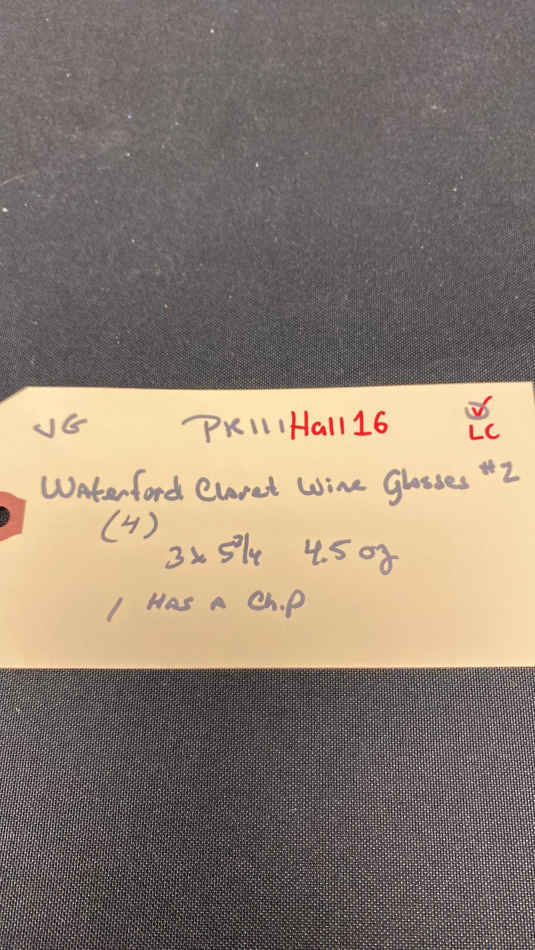 VG PK111Hall16
LC
Waterford Claret Wine Glasses #2
(4)
3x 5 3/4 4.5 oz
1 Has A Chip